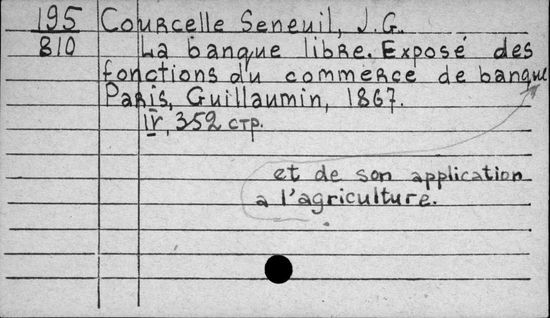 195 Courcelle Seneuil, J.G.
810 La banque libre. Exposé des
fonctions du commerce de banque
Paris, Guillaumin, 1867.
IV, 352 стр.
et de son application
a l'agriculture.